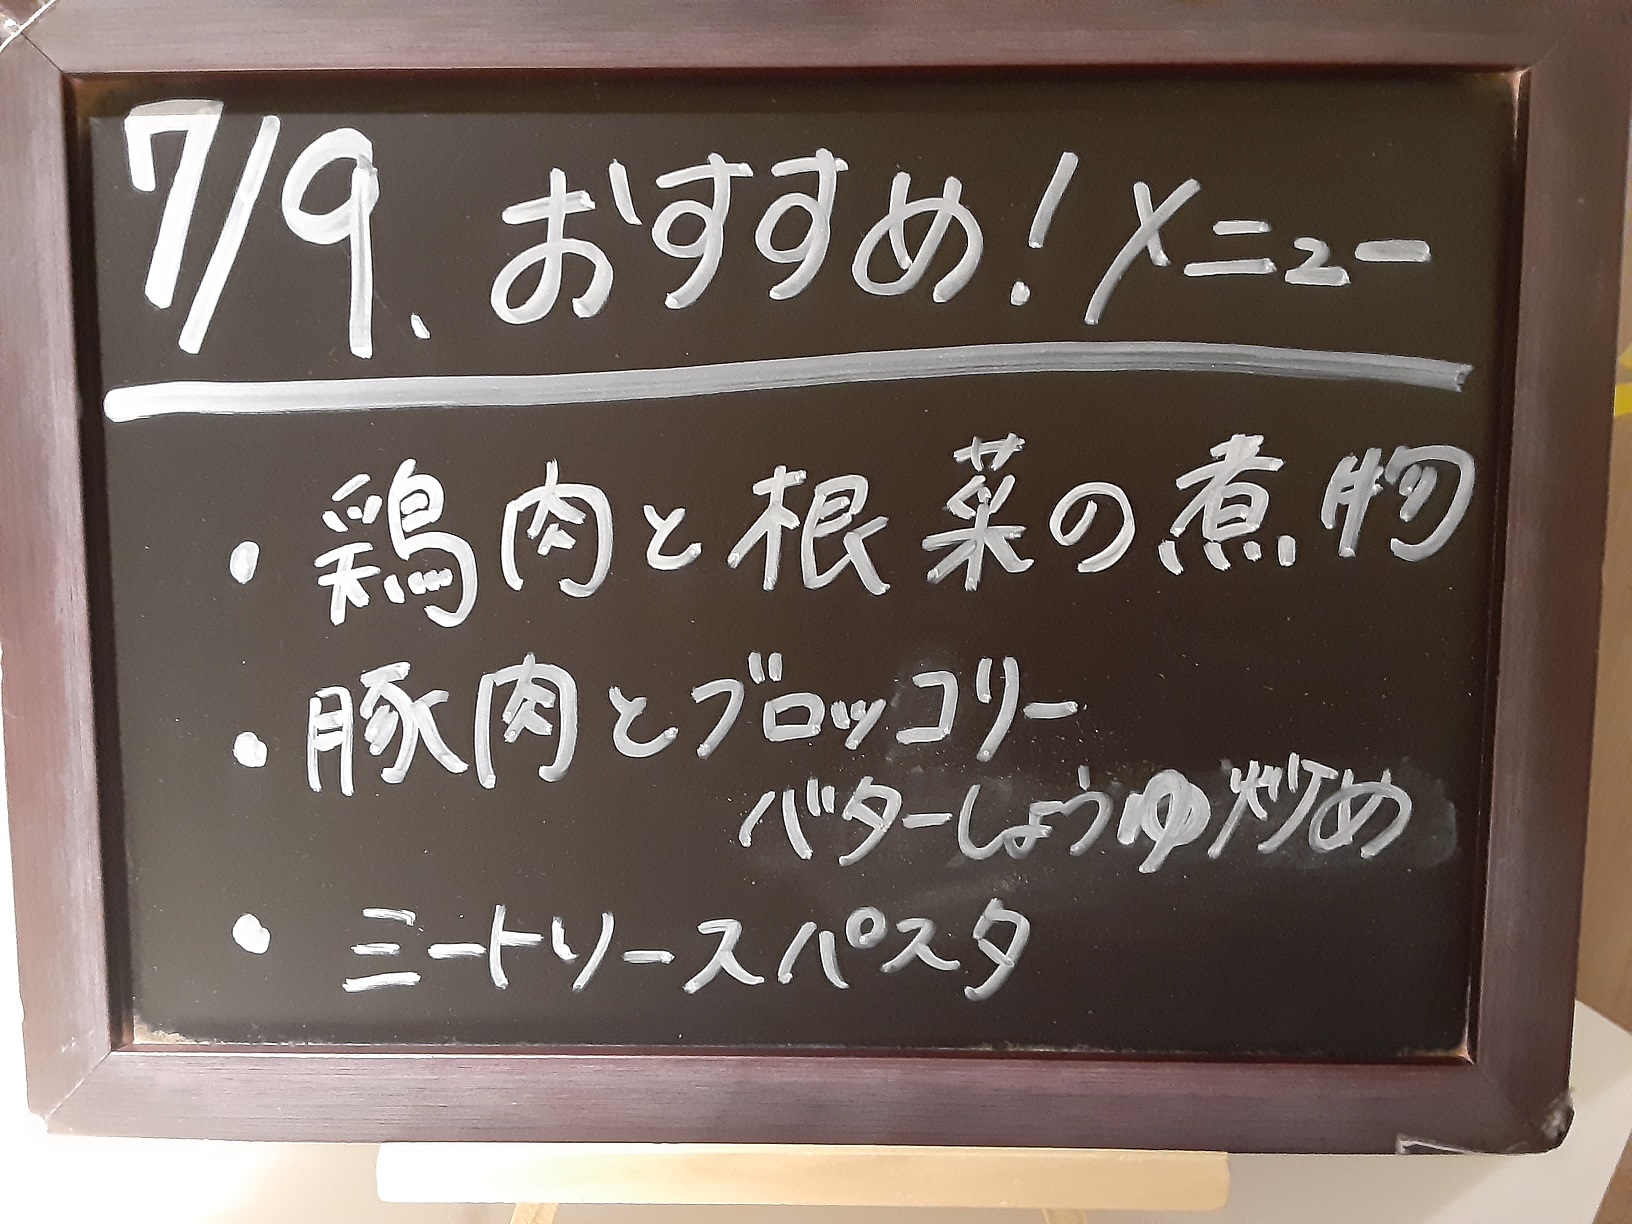 7/9、おすすめ!メニュー
・鶏肉と根菜の煮物
・豚肉とブロッコリー
バターしょうゆ炒め
・ミートソースパスタ